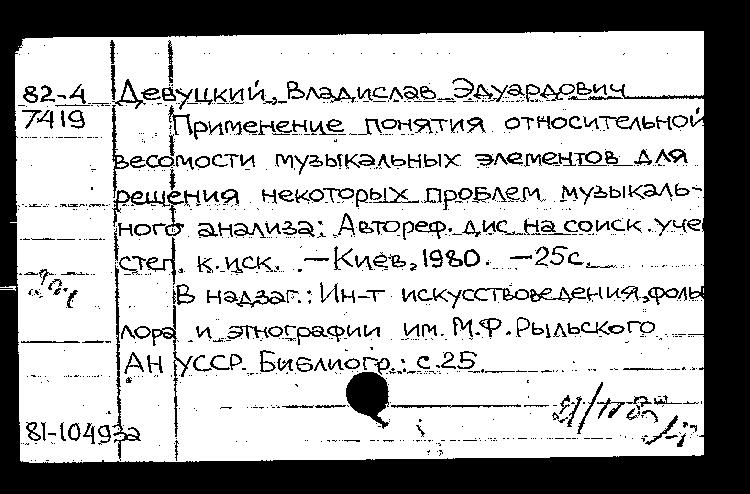 82-4 Девуцкий, Владислав Эдуардович
7419 Применение понятия относительной
весомости музыкальных элементов для
решения некоторых проблем музыкаль-
ного анализа: Автореф. дис. на соиск. учен
степ. к. иск. – Киев, 1980. – 25с.
В надзаг.: Ин-т искусствоведения, фоль
лора и этнографии им. М.Ф. Рыльского
АН УССР. Библиогр.: с. 25
81-10493а